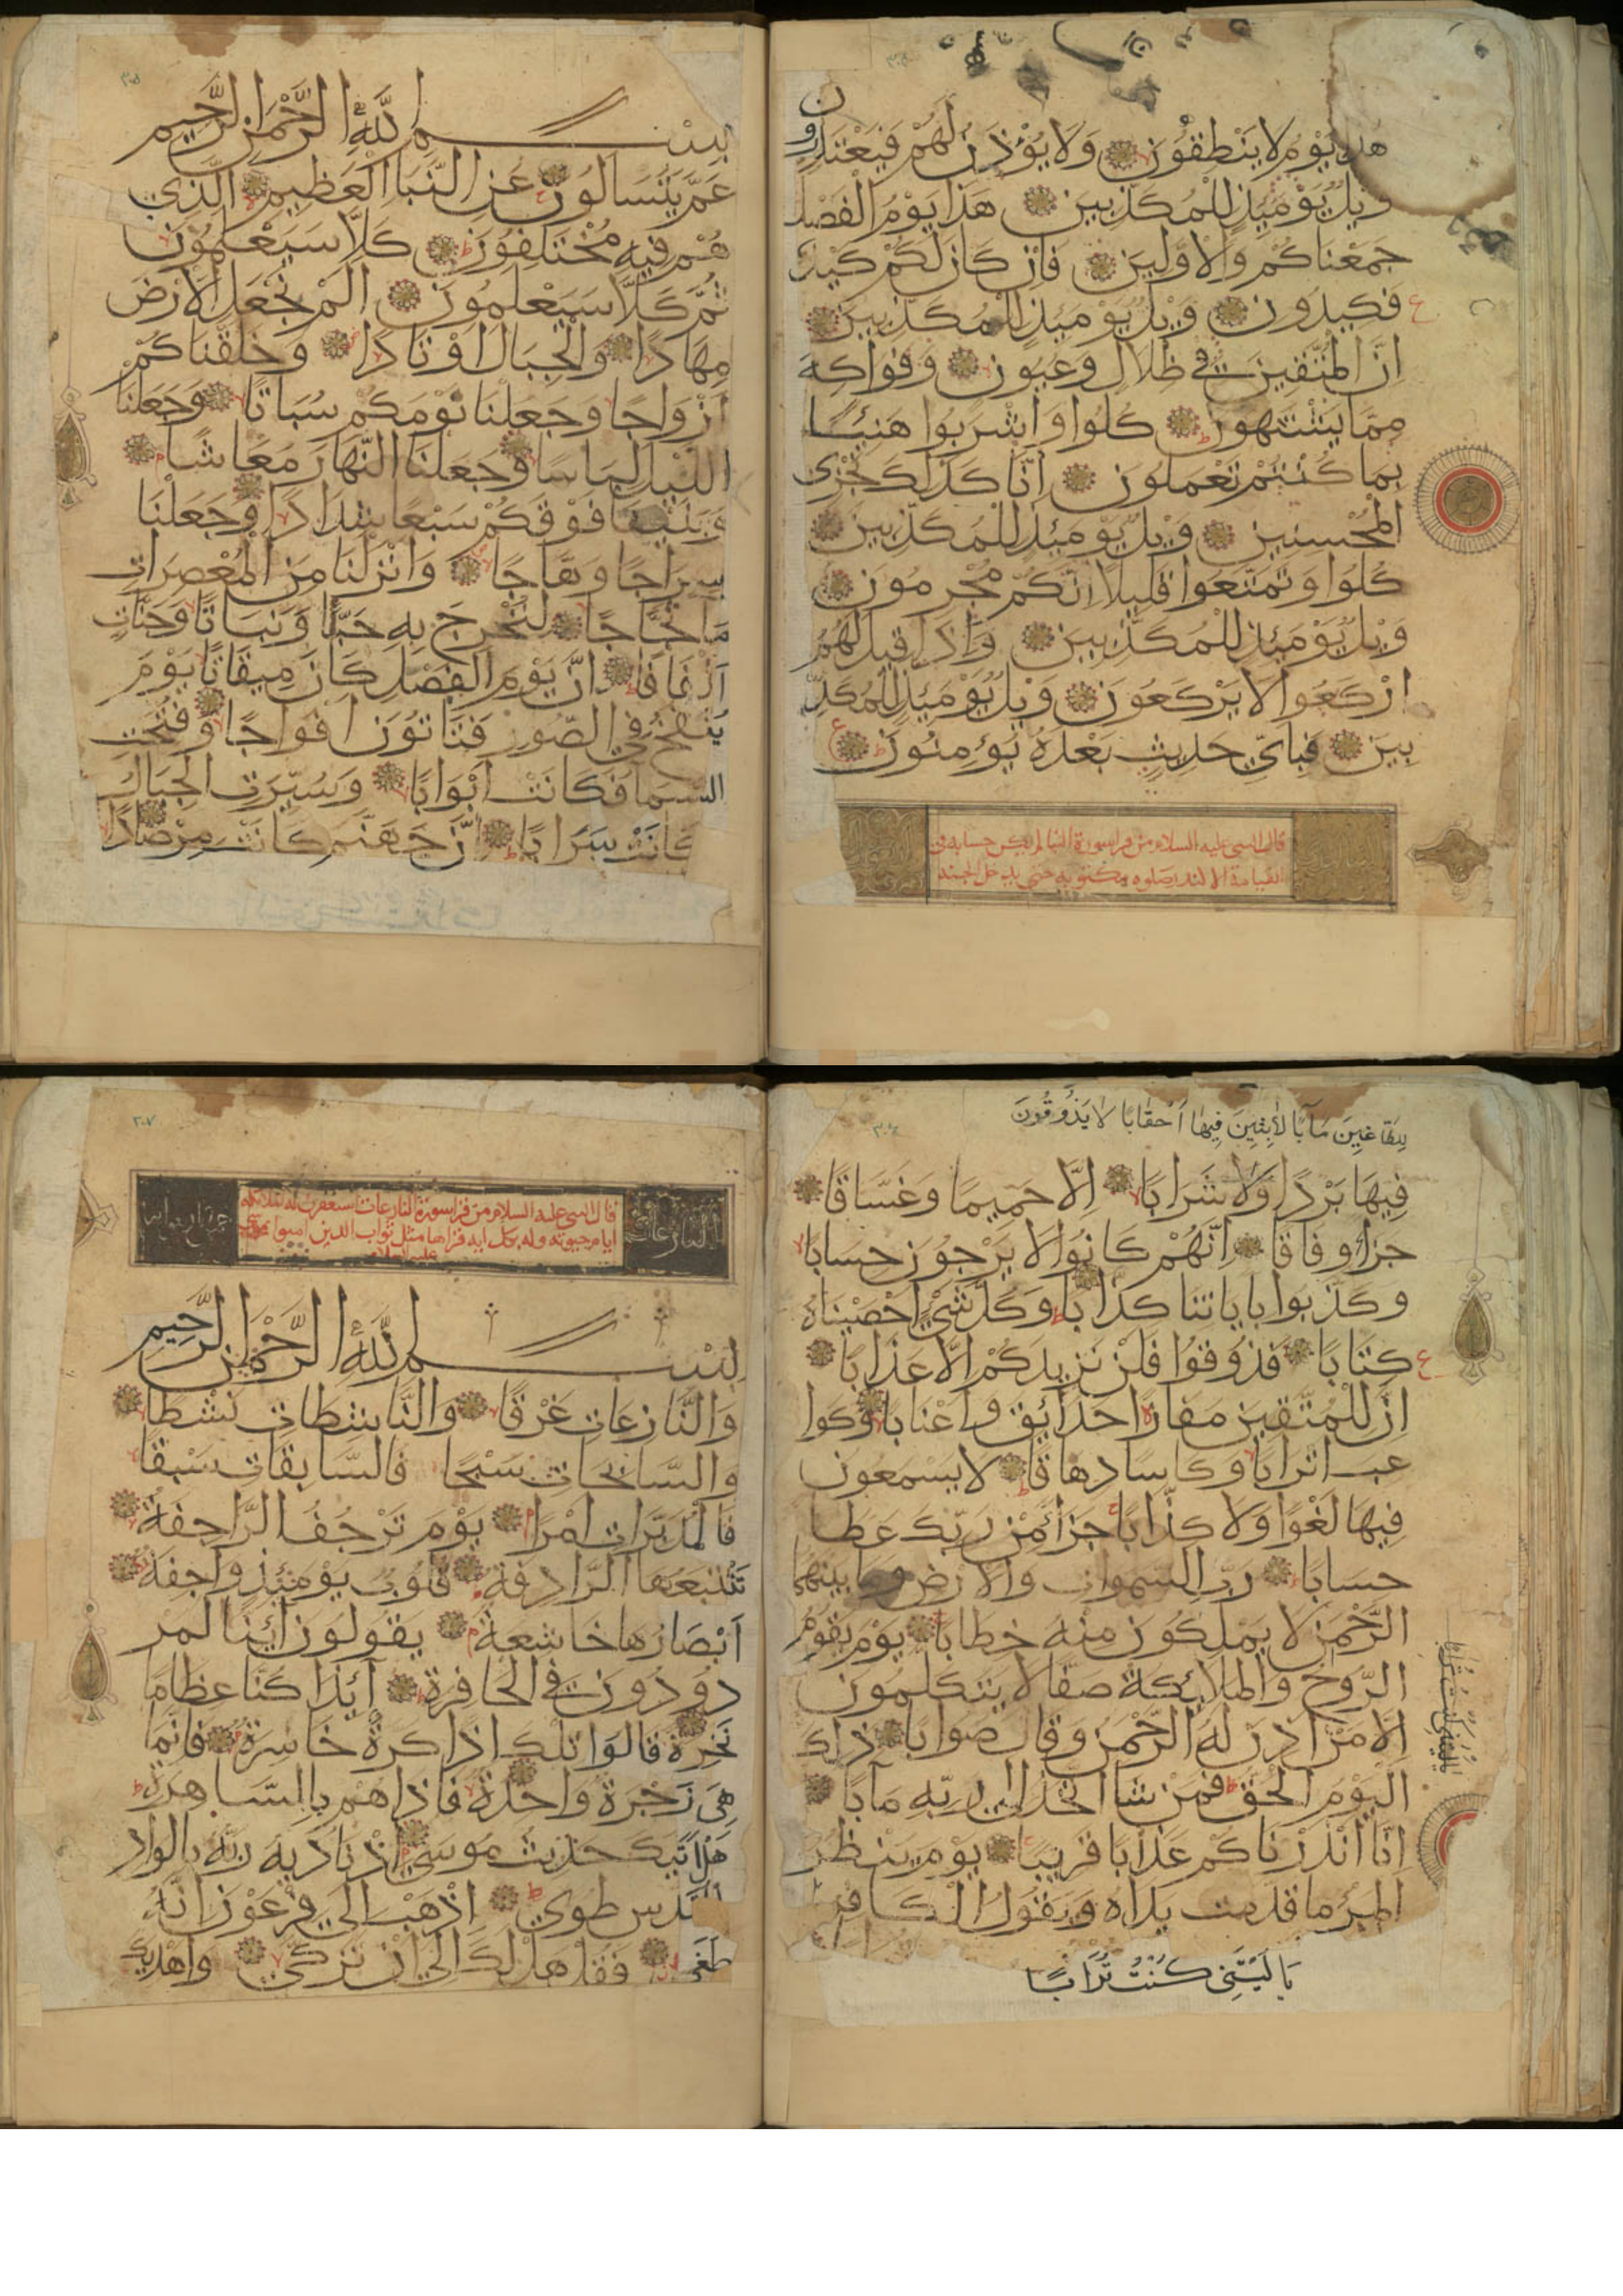 هذا يوم لا ينطقون ولا يؤذن لهم فيعتذرون
ويل يومئذ للمكذبين هذا يوم الفصل
جمعناكم والاولين فان كان لكم كيد
فكيدون ويل يومئذ للمكذبين
ان المتقين في ظلال وعيون وفواكه
مما يشتهون كلوا واشربوا هنيئا
بما كنتم تعملون انا كذلك نجزى
المحسنين ويل يومئذ للمكذبين
كلوا وتمتعوا قليلا انكم مجرمون
ويل يومئذ للمكذبين واذا قيل لهم
اركعوا لا يركعون ويل يومئذ للمكذ
بين فباي حديث بعده يؤمنون
قال النبي عليه السلام من قرا سورة النبا لم يكن حسابه في
القيامة الا لقدر صلوه مكتوبة حتى يدخل الجنة
بسم الله الرحمن الرحيم
عم يتسالون عن النبا العظيم الذي
هم فيه مختلفون كلا سيعلمون
ثم كلا سيعلمون الم نجعل الارض
مهادا والجبال اوتادا وخلقناكم
ازواجا وجعلنا نومكم سباتا وجعلنا
الليل لباسا وجعلنا النهار معاشا
وبنينا فوقكم سبعا شدادا وجعلنا
سراجا وهاجا وانزلنا من المعصرات
ما ثجاجا لنخرج به حبا ونباتا وجنات
الفافا ان يوم الفصل كان ميقاتا يوم
ينفخ في الصور فتاتون افواجا وفتحت
السما فكانت ابوابا وسيرت الجبال
فكانت سرابا ان جهنم كانت مرصادا
للطاغين مآبا لابثين فيها احقابا لا يذوقون
فيها بردا ولا شرابا الا حميما وغساقا
جزاء وفاقا انهم كانوا لا يرجون حسابا
وكذبوا باياتنا كذابا وكل شيء احصيناه
كتابا فذوقوا فلن نزيدكم الا عذابا
ان للمتقين مفازا حدائق واعنابا وكوا
عب اترابا وكاسا دهاقا لا يسمعون
فيها لغوا ولا كذابا جزاء من ربك عطا
حسابا رب السموات والارض وما بينهما
الرحمن لا يملكون منه خطابا يوم يقوم
الروح والملائكة صفا لا يتكلمون
الا من اذن له الرحمن وقال صوابا ذلك
اليوم الحق فمن شا اتخذ الى ربه مآبا
انا انذرناكم عذابا قريبا يوم ينظر
المرء ما قدمت يداه ويقول الكافر
يا ليتني كنت ترابا
يا ليتني كنت ترابا
النازعات
قال النبي عليه السلام من قرا سورة النازعات استغفرت له الملائكة
ايام حيوته وله بكل اية قراها مثل ثواب الذين امنوا بموسى
عليه السلام
بسم الله الرحمن الرحيم
والنازعات غرقا والناشطات نشطا
والسابحات سبحا فالسابقات سبقا
فالمدبرات امرا يوم ترجف الراجفة
تتبعها الرادفة قلوب يومئذ واجفة
ابصارها خاشعة يقولون ائنا لمر
دودون في الحافرة ائذا كنا عظاما
نخرة قالوا تلك اذا كرة خاسرة فانما
هي زجرة واحدة فاذا هم بالساهرة
هل اتيك حديث موسى اذ ناديه ربه بالواد
المقدس طوي اذهب الى فرعون انه
طغى فقل هل لك الى ان تزكى واهديك